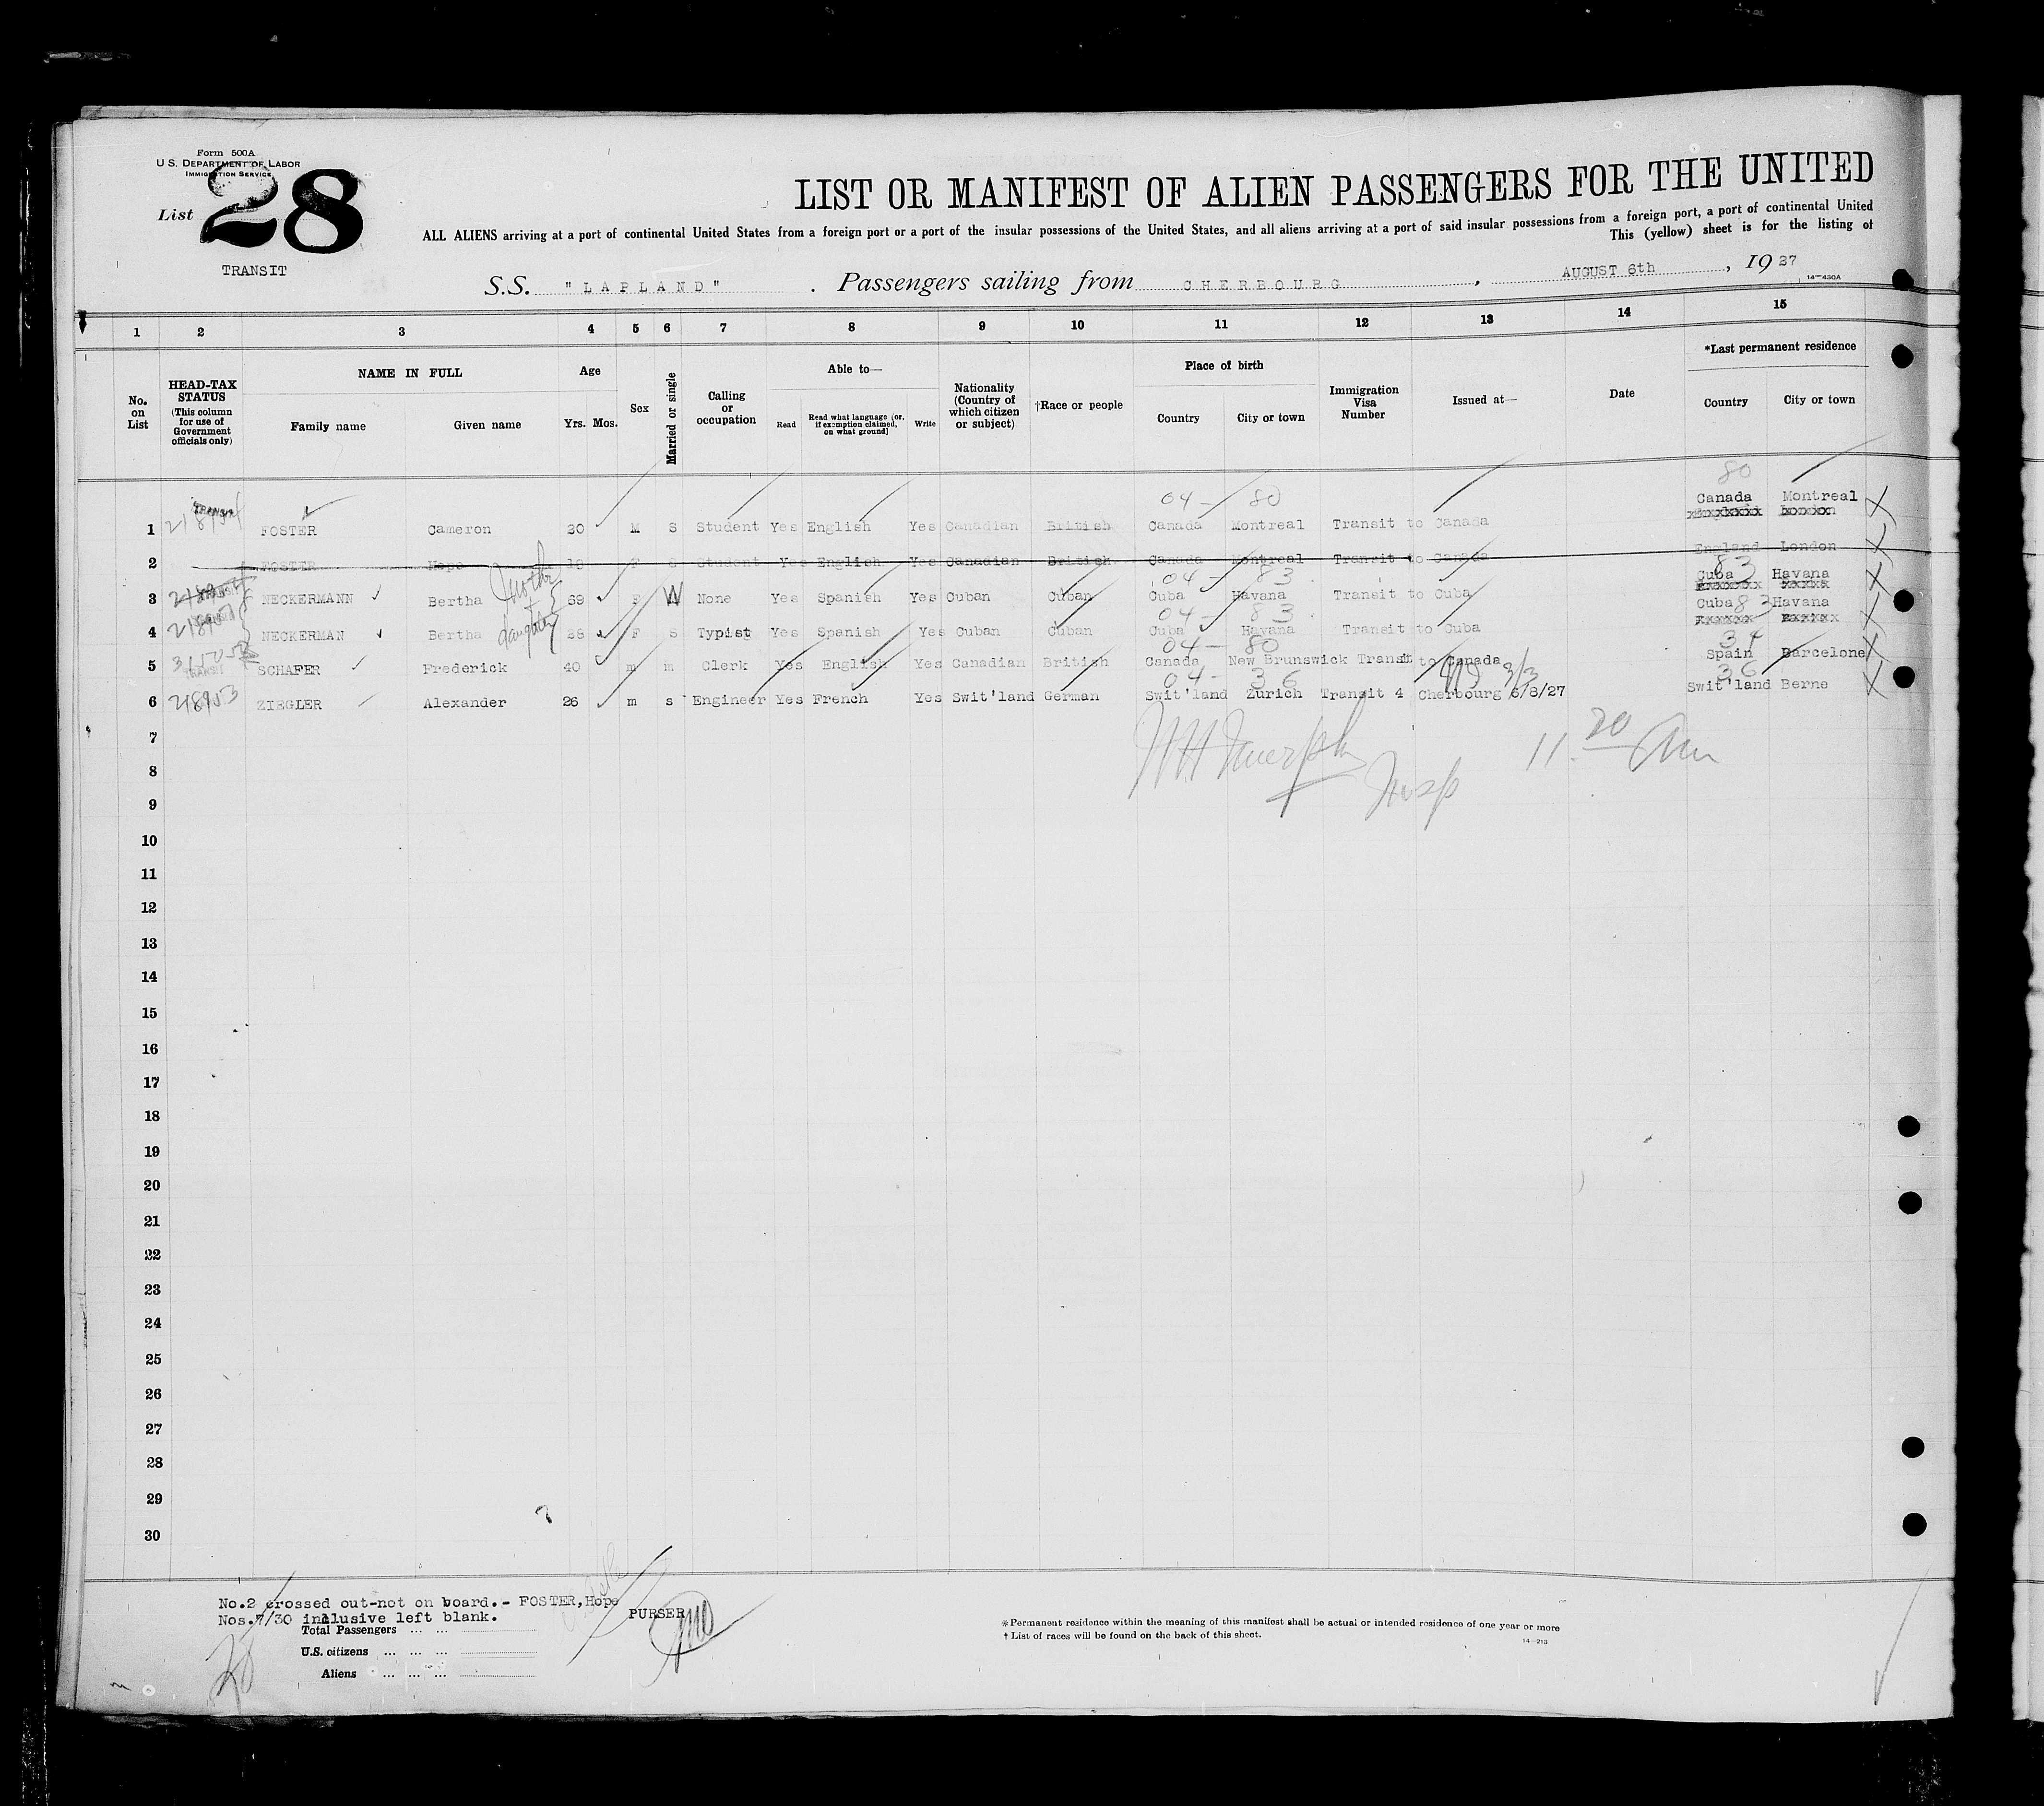 Form 500A
U.S. DEPARTMENT OF LABOR
IMMIGRATION SERVICE
List 28
TRANSIT
LIST OR MANIFEST OF ALIEN PASSENGERS FOR THE UNITED
ALL ALIENS arriving at a port of continental United States from a foreign port or a port of the insular possessions of the United States, and all aliens arriving at a port of said insular possessions from a foreign port, a port of continental United
This (yellow) sheet is for the listing of
S.S. "LAPLAND". Passengers sailing from CHERBOURG, AUGUST 6th, 1927
14—430A
1 2 3 4 5 6 7 8 9 10 11 12 13 14 15
No. on List
HEAD-TAX STATUS (This column for use of Government officials only)
NAME IN FULL
Family name Given name
Age
Yrs. Mos.
Sex
Married or single
Calling or occupation
Able to—
Read Read what language (or, if exemption claimed, on what ground) Write
Nationality (Country of which citizen or subject)
†Race or people
Place of birth
Country City or town
Immigration Visa Number
Issued at—
Date
*Last permanent residence
Country City or town
04 - 80 80
1 TRANSIT FOSTER Cameron 30 M S Student Yes English Yes Canadian British Canada Montreal Transit to Canada Canada Montreal
2 FOSTER Hope 18 F S Student Yes English Yes Canadian British Canada Montreal Transit to Canada England London
04 - 83 83
3 NECKERMANN Bertha Mother 69 F W None Yes Spanish Yes Cuban Cuban Cuba Havana Transit to Cuba Cuba Havana
04 - 83 83
4 NECKERMAN Bertha daughter 38 F S Typist Yes Spanish Yes Cuban Cuban Cuba Havana Transit to Cuba Cuba Havana
04 - 80 34
5 TRANSIT SCHAFER Frederick 40 m m Clerk Yes English Yes Canadian British Canada New Brunswick Transit to Canada Spain Barcelone
04 - 36 3/3 36
6 218953 ZIEGLER Alexander 26 m s Engineer Yes French Yes Swit'land German Swit'land Zurich Transit 4 Cherbourg 6/8/27 Swit'land Berne
7
8
Insp 11.20 am
9
10
11
12
13
14
15
16
17
18
19
20
21
22
23
24
25
26
27
28
29
30
No.2 crossed out-not on board.- FOSTER,Hope
Nos.7/30 inclusive left blank.
PURSER
Total Passengers ... ...
U.S. citizens ... ... ...
Aliens ... ... ...
*Permanent residence within the meaning of this manifest shall be actual or intended residence of one year or more
† List of races will be found on the back of this sheet.
14—213